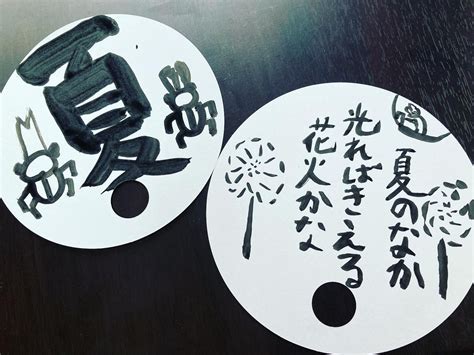 夏
夏のなか
光ればきえる
花火かな